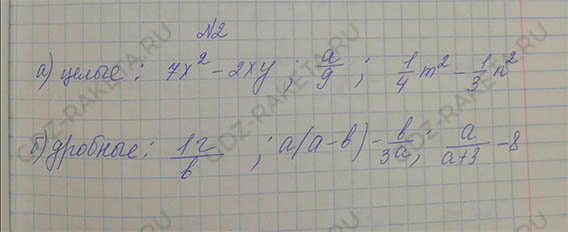 №2
а) целые: 7x² - 2xy; a/9; 1/4 m² - 1/3 n²
б) дробные: 12/b; a(a-b) - b/3a; a/a+3 - 8
GDZ-RAKETA.RU